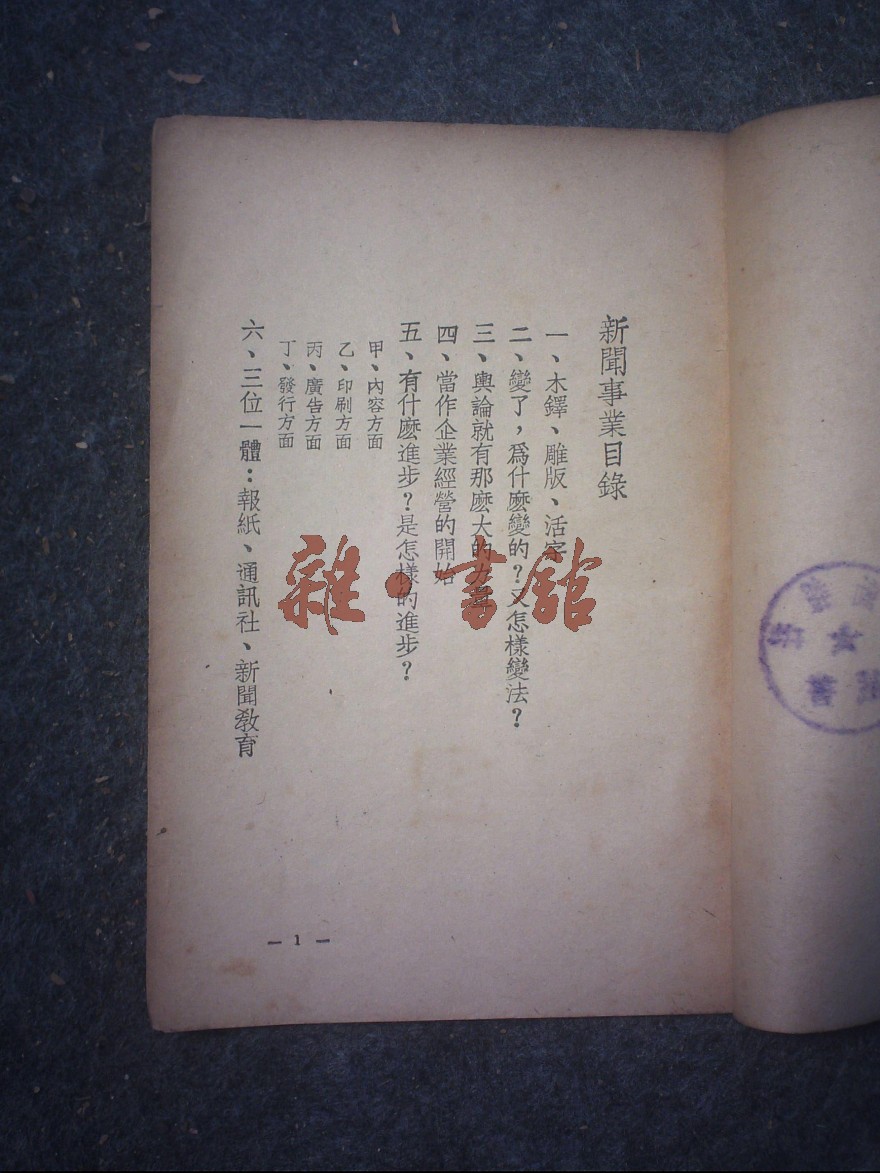 新聞事業目錄
一、木鐸、雕版、活字
二、變了，爲什麽變的？又怎樣變法？
三、輿論就有那麽大的力量
四、當作企業經營的開始
五、有什麽進步？是怎樣的進步？
甲、內容方面
乙、印刷方面
丙、廣告方面
丁、發行方面
六、三位一體：報紙、通訊社、新聞敎育
— 1 —
雜·書館